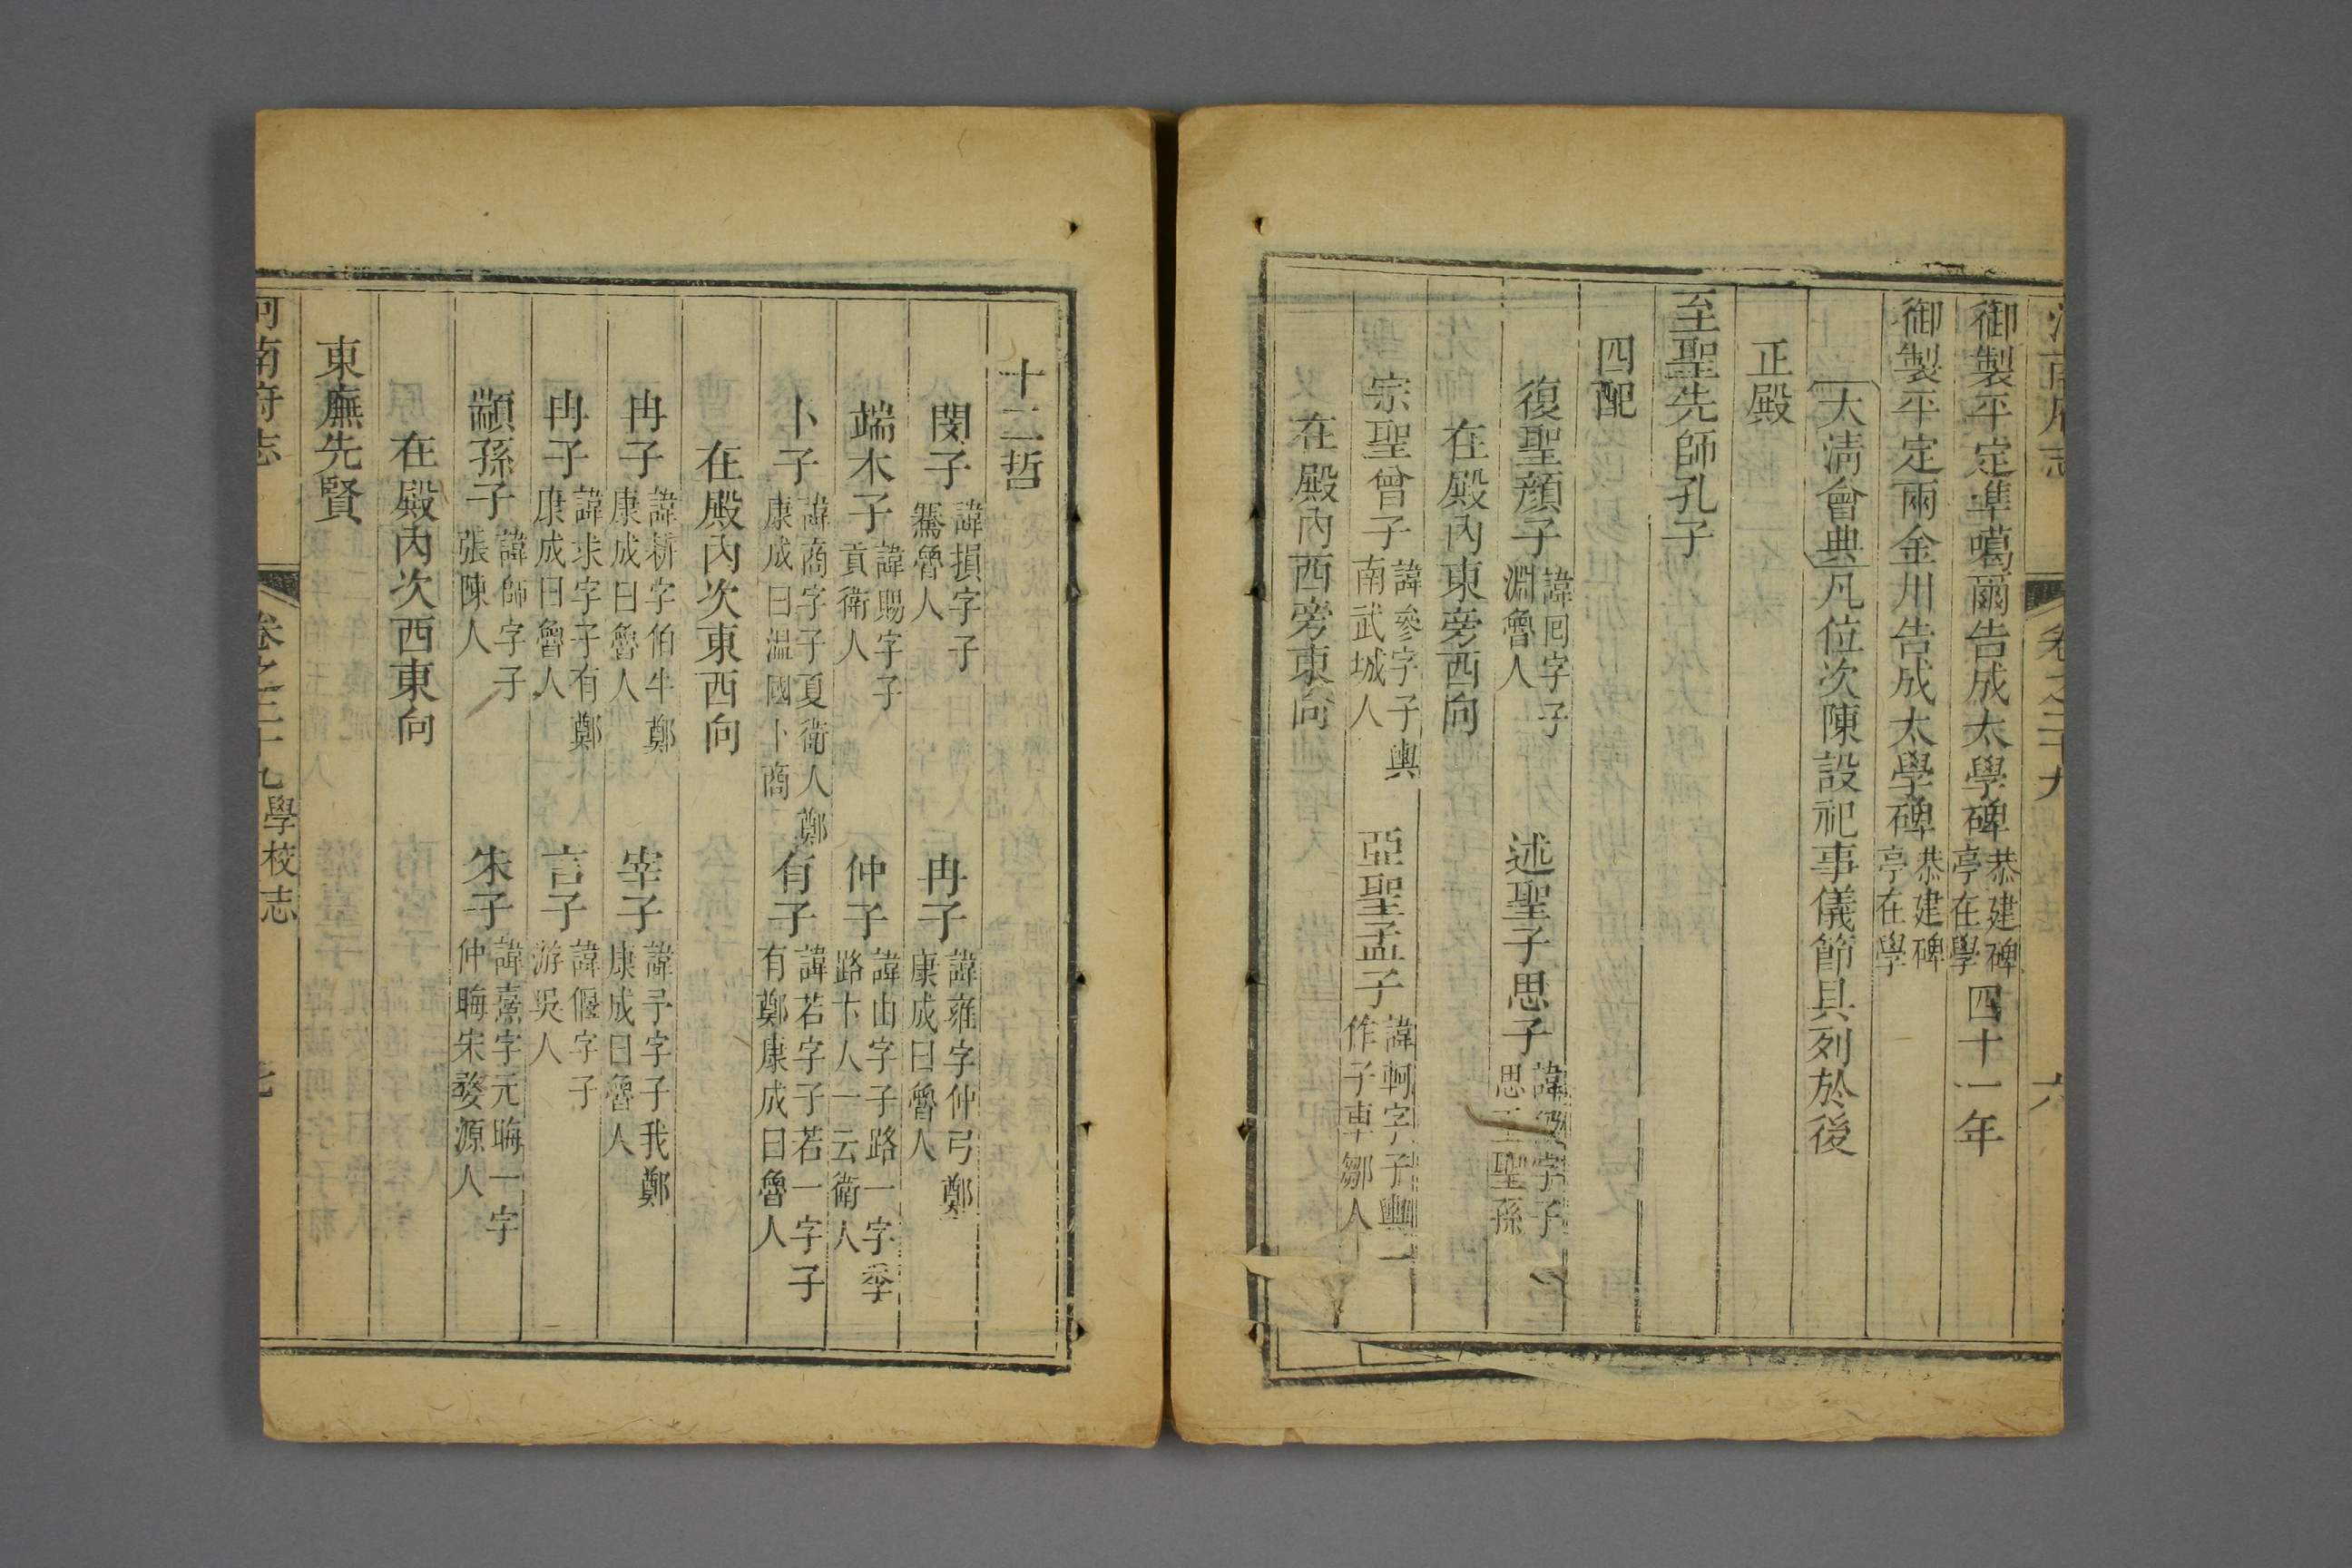 御製平定準噶爾告成太學碑恭建碑亭在學四十一年
御製平定兩金川告成太學碑恭建碑亭在學
大淸會典凡位次陳設祀事儀節具列於後
正殿
至聖先師孔子
四配
復聖顏子諱囘字子淵魯人 述聖子思子諱伋字子思至聖孫
在殿內東旁西向
宗聖曾子諱參字子輿南武城人 亞聖孟子諱軻字子輿一作子車鄒人
在殿內西旁東向
十二哲
閔子諱損字子騫魯人 冉子諱雍字仲弓鄭康成曰魯人
端木子諱賜字子貢衛人 仲子諱由字子路一字季路卞人一云衛人
卜子諱商字子夏衛人鄭康成曰温國卜商 有子諱若字子若一字子有鄭康成曰魯人
在殿內次東西向
冉子諱耕字伯牛鄭康成曰魯人 宰子諱予字子我鄭康成曰魯人
冉子諱求字子有鄭康成曰魯人 言子諱偃字子游吳人
顓孫子諱師字子張陳人 朱子諱熹字元晦一字仲晦宋婺源人
在殿內次西東向
東廡先賢
河南府志 卷之二十九學校志 七